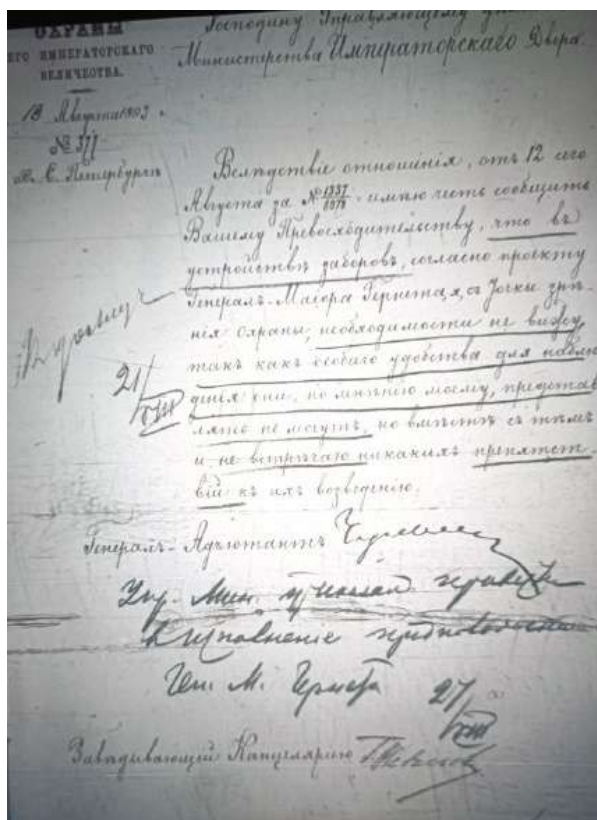 ОХРАНЫ
ЕГО ИМПЕРАТОРСКАГО
ВЕЛИЧЕСТВА.
Господину Управляющему
Министерства Императорскаго Двора.
18 Августа 1903 г.
№ 377
С. Петербургъ
Вслѣдствіе отношенія, отъ 12 сего
Августа за № 1337/1373 имѣю честь сообщить
Вашему Превосходительству, что въ
устройствѣ заборовъ, согласно проекту
Генералъ-Маіора Гернета, съ точки зрѣ-
нія Охраны, необходимости не вижу,
такъ какъ особаго удобства для наблю
денія они, по мнѣнію моему, представ
лять не могутъ, но вмѣстѣ съ тѣмъ
и не встрѣчаю никакихъ препятст-
вій къ ихъ возведенію.
21/VIII
Генералъ-Адъютантъ
Упр. Мин.
въ исполненіе
Ген. М. Гернета
27/VIII
Завѣдывающій Канцеляріею